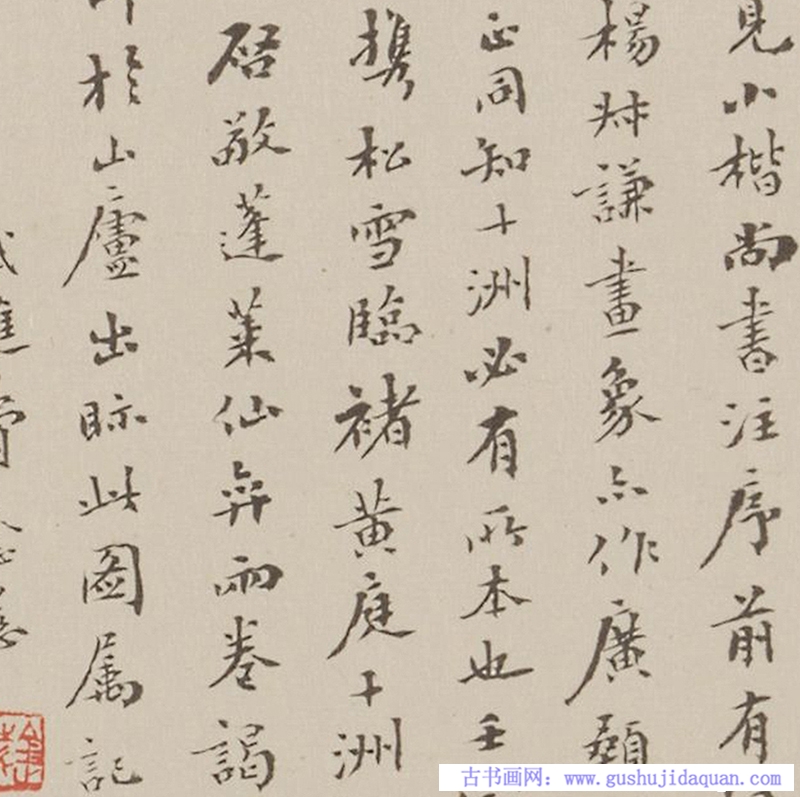 見小楷尚書注序前有
楊叔謙畫象亦作廣額
正同知十洲必有所本也壬
携松雪臨褚黃庭十洲
啓敬蓬萊仙弈兩卷謁
於山廬出眎此圖属記
古书画网：www.gushujidaquan.com